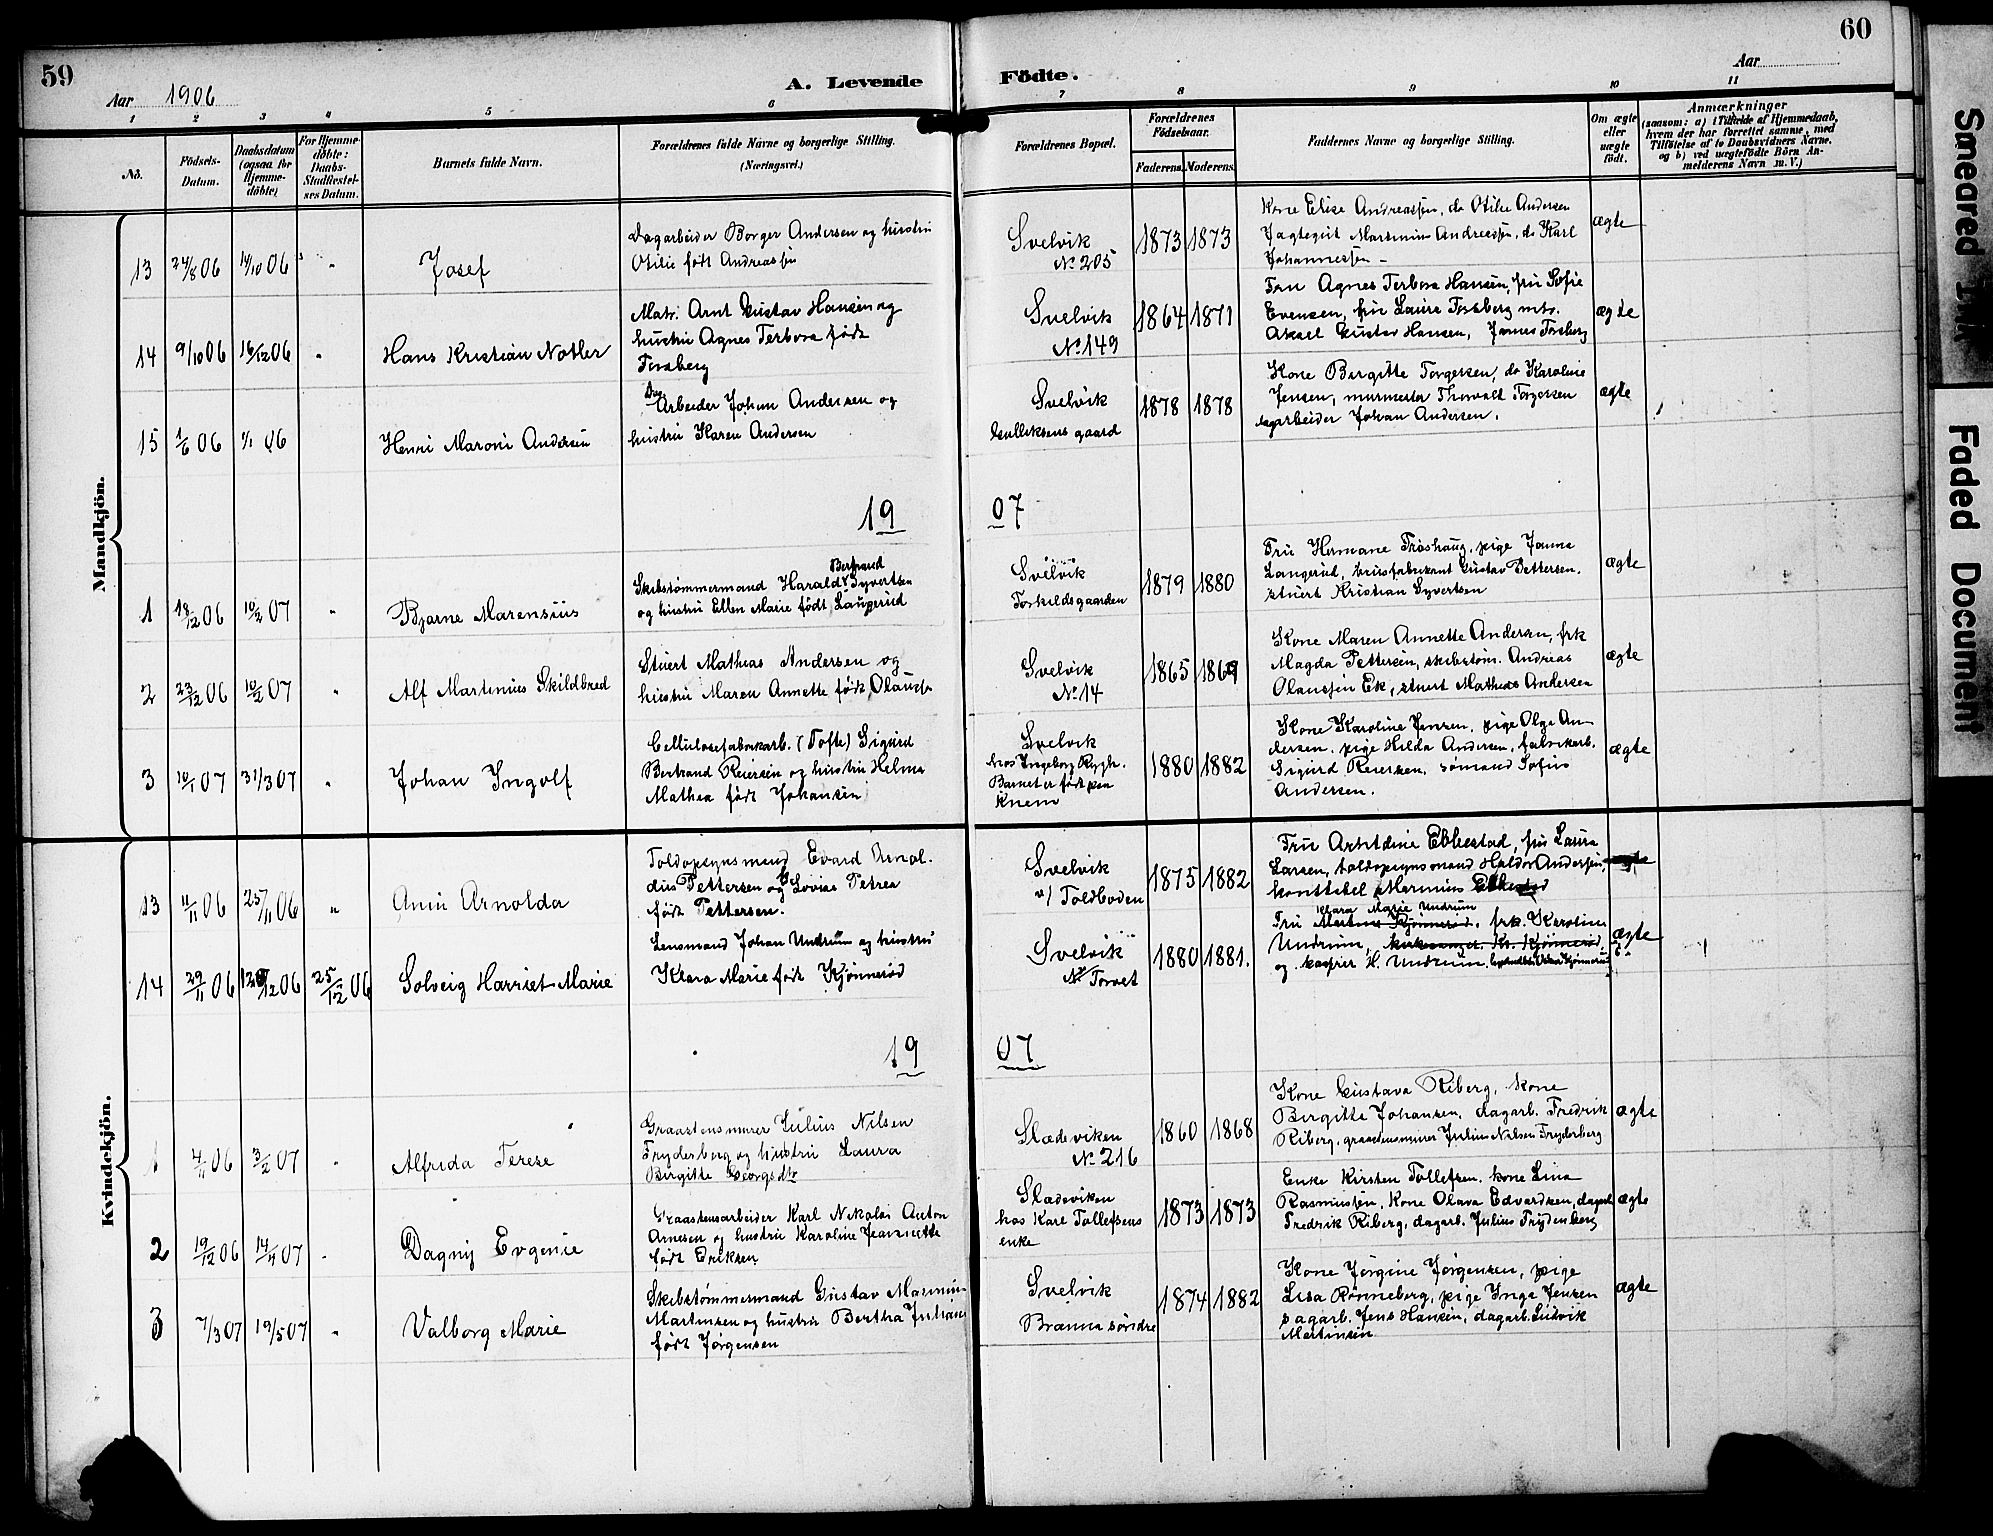 59
Aar 1906
A. Levende
Födte.
60
Aar
1 2 3 4 5 6 7 8 9 10 11
No.
Födsels-
Datum.
Daabsdatum
(ogsaa for
Hjemme-
döbte)
For Hjemme-
döbte:
Daabs-
Stadfæstel-
ses Datum.
Barnets fulde Navn.
Forældrenes fulde Navne og borgerlige Stilling.
(Næringsvei.)
Forældrenes Bopæl.
Forældrenes
Födselsaar.
Faderens. Moderens.
Faddernes Navne og borgerlige Stilling.
Om ægte
eller
uægte
födt.
Anmærkninger
(saasom: a) i Tilfælde af Hjemmedaab,
hvem der har forrettet samme, med
Tilföielse af to Daabsvidners Navne,
og b) ved uægtefödte Börn An-
melderens Navn m. V.)
Mandkjön.
13 24/8 06 14/10 06 "
Josef
Dagarbeider Borger Andersen og hustru
Otilie født Andreassen
Svelvik
No 205
1873 1873
Kone Elise Andreassen, do Otilie Andersen
Jagtegut Martinius Andreassen, do Karl
Johannessen –
ægte
14 9/10 06 16/12 06 "
Hans Kristian Notler
Matr. Arnt Gustav Hansen og
hustru Agnes Terbora født
Forsberg
Svelvik
No 149
1864 1871
Fru Agnes Terbora Hansen, fru Sofie
Evensen, fru Laura Forsberg mtr.
Aksel Gustav Hansen, Forsberg
ægte
15 1/6 06 1/1 06
Henri Maroni Andersen
Dagarbeider Johan Andersen og
hustru Karen Andersen
Svelvik
Gulliksens gaard
1878 1878
Kone Birgitte Torgersen, do Karoline
Jensen, murmester Thorvald Torgersen
dagarbeider Johan Andersen.
ægte
19 07
1 18/12 06 10/2 07 "
Bjarne Marensius
Skibstømmermand Harald Bertrand Syvertsen
og hustru Ellen Marie født Langerud
Svelvik
Torkildsgaarden
1879 1880
Fru Hermane Trøshaug, pige Janna
Langerud, brusfabrikant Gustav Pettersen,
stuert Kristian Syvertsen
ægte
2 23/12 06 10/2 07 "
Alf Martinius Skildbred
Stuert Mathias Andersen og
hustru Maren Annette født Olaussen
Svelvik
No 14
1865 1869
Kone Maren Annette Andersen, frk
Magda Pettersen, skibstøm. Andreas
Olaussen Ek, stuert Mathias Andersen
ægte
3 10/1 07 31/3 07 "
Johan Ingolf
Cellulosefabrikarb. (Tofte) Sigurd
Bertrand Reiersen og hustru Helma
Mathea født Johansen
Svelvik
hos Ingeborg Rygh.
Barnet er født paa
Knem
1880 1882
Kone Karoline Jensen, pige Olga An-
dersen, pige Hilda Andersen, fabrikarb.
Sigurd Reiersen, sømand Sofus
Andersen.
ægte
Kvindekjön.
13 11/11 06 25/11 06 "
Anni Arnolda
Toldopsynsmand Evard Arnol-
dus Pettersen og Lovise Petrea
født Pettersen.
Svelvik
v/ Toldboden
1875 1882
Fru Ebbestad, fru Laura
Larsen, toldopsynsmand Haldor Andersen,
konstabel Marinius Ebbestad
ægte
14 29/11 06 12/12 06 25/12 06
Solveig Harriet Marie
Lensmand Johan Undrum og hustru
Klara Marie født Kjønnerød
Svelvik
No Torvet
1880 1881.
Fru Klara Marie Undrum, frk. Karoline
Undrum, kirkesanger Kr. Kjønnerød,
og kasser H. Undrum,
ægte
19 07
1 4/11 06 3/2 07 "
Alfrida Terese
Graastensmurer Julius Nilsen
Frydenberg og hustru Laura
Birgitte Georgsdtr
Sladeviken
No 216
1860 1868
Kone Gustava Riberg, kone
Birgitte Johansen, dagarb. Fredrik
Riberg, graastensmurer Julius Nilsen Frydenberg
ægte
2 19/12 06 14/4 07 "
Dagny Evgenie
Graastensarbeider Karl Nikolai Anton
Arnesen og hustru Karoline Jeannette
født Eriksen
Sladeviken
hos Karl Tollefsens
enke
1873 1873
Enke Kirsten Tollefsen, kone Lina
Rasmussen, kone Olava Edvardsen, dagarb.
Fredrik Riberg, dagarb. Julius Frydenberg
ægte
3 7/3 07 19/5 07 "
Valborg Marie
Skibstømmermand Gustav Marinius
Martinsen og hustru Bertha Juliane
født Jørgensen
Svelvik
Brænna søndre
1874 1882
Kone Jørgine Jørgensen, pige
Lisa Rønneberg, pige Inga Jensen
dagarb. Jens Hansen, dagarb. Ludvik
Martinsen
ægte
Smeared Ink
Faded Document